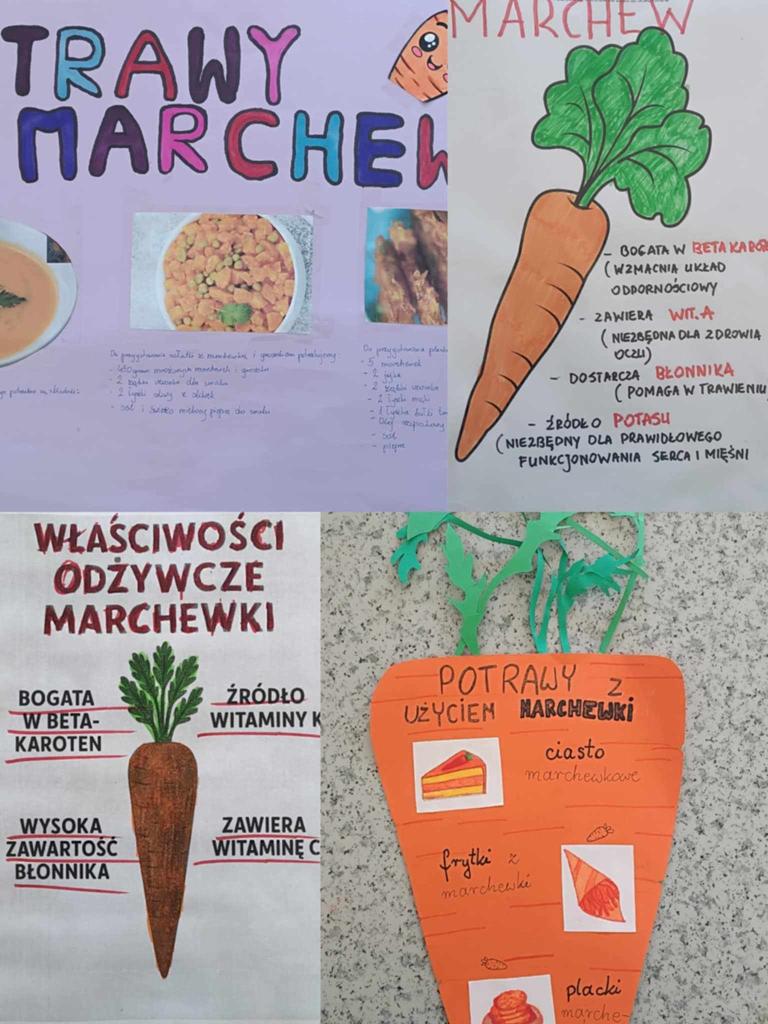 TRAWY
MARCHEW
Do przygotowania sałatki z marchewką i groszkiem potrzebujemy:
- 450 gram mrożonych marchewki i groszku
- 2 ząbki czosnku dla smaku
- 2 łyżki oliwy z oliwek
- sól i świeżo mielony pieprz do smaku
Do przygotowania
- 5 marchewek
- 2 jajka
- 2 ząbki czosnku
- 2 łyżki mąki
- 1 łyżka bułki
- Olej rzepakowy
- sól
- pieprz
MARCHEW
- BOGATA W BETA KARO
(WZMACNIA UKŁAD
ODPORNOŚCIOWY
- ZAWIERA WIT.A
(NIEZBĘDNA DLA ZDROWIA
OCZU)
- DOSTARCZA BŁONNIKA
(POMAGA W TRAWIENIU
- ŹRÓDŁO POTASU
(NIEZBĘDNY DLA PRAWIDŁOWEGO
FUNKCJONOWANIA SERCA I MIĘŚNI
WŁAŚCIWOŚCI
ODŻYWCZE
MARCHEWKI
BOGATA
W BETA-
KAROTEN
ŹRÓDŁO
WITAMINY K
WYSOKA
ZAWARTOŚĆ
BŁONNIKA
ZAWIERA
WITAMINĘ C
POTRAWY Z
UŻYCIEM MARCHEWKI
ciasto
marchewkowe
frytki z
marchewki
placki
marche-